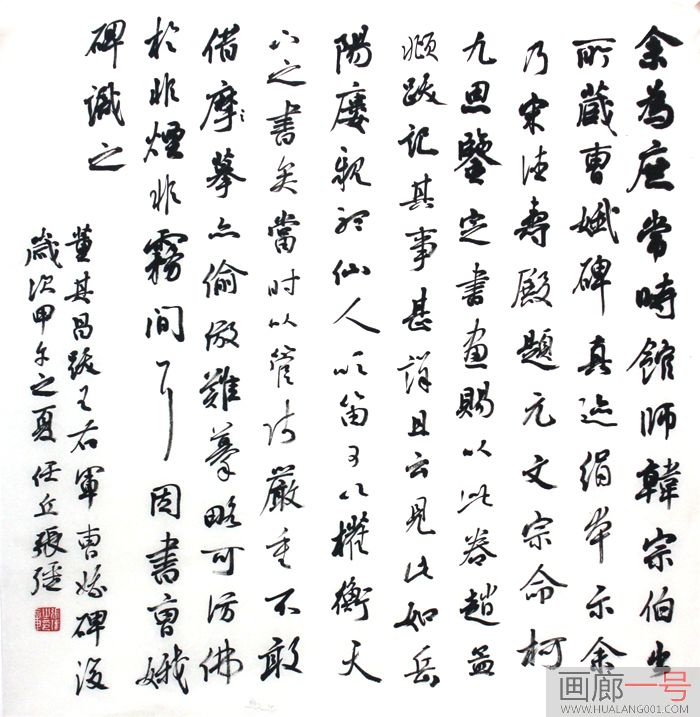 余為庶常時館師韓宗伯出
所蔵曹娥碑真迹絹本示余
乃宋德壽殿題元文宗命柯
九思鑒定書畫賜以此卷趙孟
頫跋記其事甚詳且云見此如岳
陽樓親聽仙人吹笛可以權衡天
下之書矣當时以管師嚴重不敢
借摩摹亦偷倣難摹略可仿佛
於非煙非霧間耳因書曹娥
碑識之
董其昌跋王右軍曹娥碑後
歲次甲午之夏任丘張
画廊一号
WWW.HUALANG001.COM